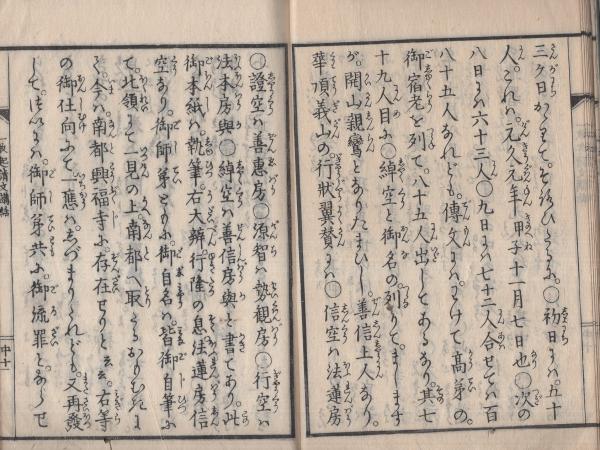 三ケ日かゝりて。そろひたるなり。◯初日には。五十
人。これは。元久元年。甲子十一月七日也。◯次の
八日には六十三人◯九日には七十二人合せては百
八十五人なれども。傳文にはわけて高弟の。
御宿老を列て。八十五人出してあるなり。其七
十九人目に。◯綽空と御名の。列りて。まします
が。開山親鸞とありたまひし。善信上人なり。
華頂義山の。行状翼賛には◯信空は法蓮房
◯證空は善惠房◯源智は勢觀房◯行空は
法本房與◯綽空は善信房與と書てあり。此
御本紙は。執筆。右大辨。行隆の息法蓮房信
空なり。御師弟ともに。御自名は。皆御自筆に
て。此領にて一見の上。南都へ取
今は。南都興福寺に。存在せりと云云。右等
の御仕向にて。一應はしづまりたれども。又再發
して。つひには。御師弟共に。御流罪と。ならせ
起請文講
中十